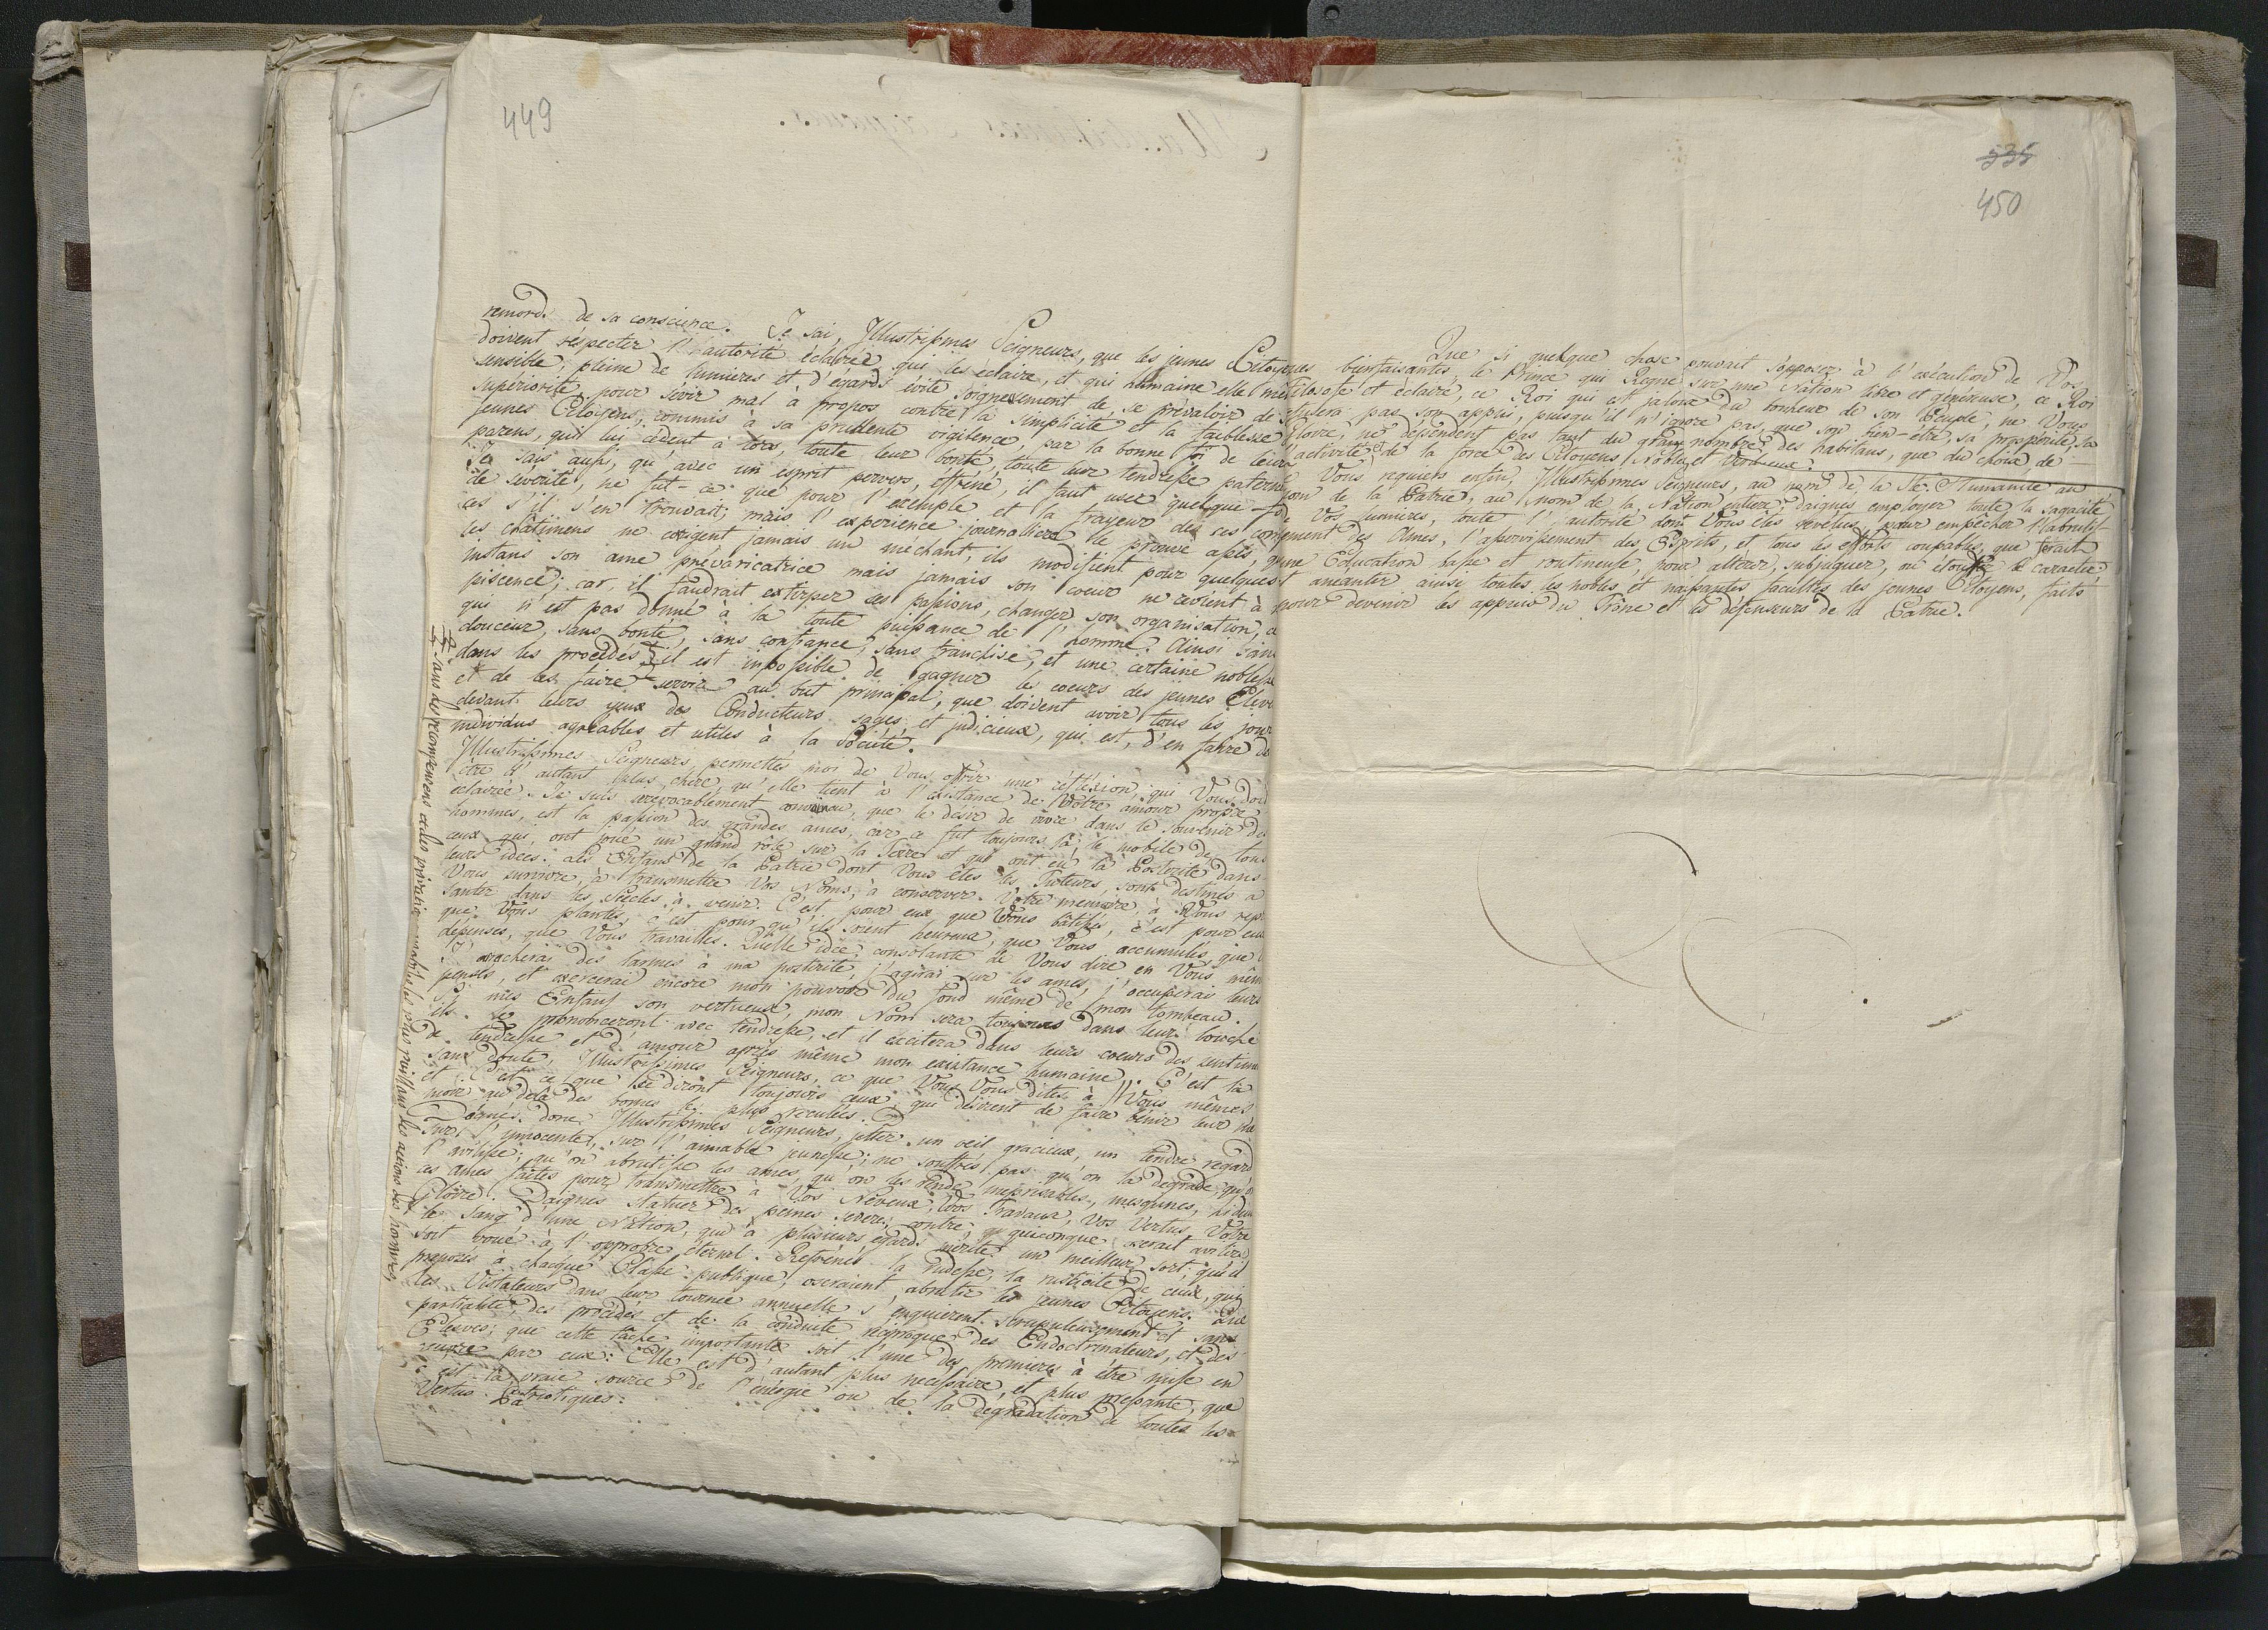 449
remords de sa conscience. Je sai, Illustrissimes Seigneurs, que les jeunes Citoyens
doivent réspecter l'autorité éclairée qui les éclaire, et qui humaine elle mê
sensible, pleine de lumieres et d'égards évite soigneusement de se prévaloir de
supériorité, pour sévir mal à propos contre la simplicité et la faiblesse
jeunes Citoyens, commis à sa prudente vigilence par la bonne foi de leurs
parens, qui lui cèdent à tors, toute leur bonté, toute leur tendresse paternel
Je sais aussi, qu'avec un esprit pervers, effréné, il faut user quelque fo
de séverité, ne fut-ce que pour l'exemple et la frayeur de ses
ces s'il s'en trouvait; mais l'expérience journalliere le prouve assés, q
les châtimens ne corigent jamais un méchant, ils modifient pour quelques
instans son ame prévaricatrice mais jamais son coeur ne revient à
piscence; car, il faudrait extirper ses passions, changer son organisation, c
qui n'est pas donné à la toute puissance de l'homme. Ainsi sans
douceur, sans bonté, sans confiance, sans franchise, et une certaine noblesse
dans les procédés il est impossible de gagner les coeurs des jeunes Eleve
et de les faire servir au but principal, que doivent avoir tous les jour
devant leurs yeux des Conducteurs sages et judicieux, qui est, d'en faire de
individus agréables et utiles à la Société.
Illustrissimes Seigneurs, permettes moi de Vous offrir une réfléxion, qui Vous doit
être d'autant plus chere, qu'elle tient à l'existance de Votre amour propre
éclairée. Je suis irrévocablement convaincu, que le désir de vivre dans le souvenir de
hommes, est la passion des grandes ames, car ce fut toujours là, le mobile de tous
ceux qui ont joué un grand rôle sur la Terre et qui ont eu la Postérité dans
leurs idées. Les Enfans de la Patrie dont Vous êtes les Tuteurs, sont destinés à
Vous survivre, à transmettre Vos Noms, à conserver Votre memoire, à Vous repré
senter dans les Siècles à venir. C'est pour eux que Vous bâtissés, c'est pour eux
que Vous plantés, c'est pour qu'ils soient heureux, que Vous accumulés, que
dépensés, que Vous travaillés. Quelle idée consolante de Vous dire en Vous mêm
j'arracherai des larmes à ma postérité, j'agirai sur les ames, j'occuperai leurs
pensés, et exercerai encore mon pouvoir du fond même de mon tombeau.
Si mes Enfans son vertueux, mon Nom sera toujours dans leur bouche
ils le prononceront avec tendresse, et il excitera dans leurs coeurs des sentim
de tendresse et d'amour après même mon existance humaine. C'est là
sans doute, Illustrissimes Seigneurs, ce que Vous Vous dites à Vous mêmes
et c'est ce que se diront toujours ceux qui désirent de faire bénir leur mé
moire au delà des bornes les plus reculées.
Daignés donc Illustrissimes Seigneurs, jetter un oeil gracieux, un tendre regard
sur l'innocente, sur l'aimable jeunesse; ne souffrés pas qu'on la dégrade, qu'o
l'avilisse; qu'on abrutisse les ames, qu'on les rende méprisables, mesquines, hideu
ces ames faites pour transmettre à Vos Neveux, Vos Travaux, Vos Vertus, Votre
Gloire. Daignés statuer des peines severes, contre quiconque oserait avilir
le sang d'une Nation, qui à plusieurs égards mérite un meilleur sort; qu'il
soit voué à l'opprobre éternel. Refrénés la rudesse, la rusticité de ceux, qui
preposés à chaque Classe publique, oseraient abrutir les jeunes Citoyens. Que
les Visitateurs dans leur tournée annuelle s'enquierent scrupuleusement et sans
partialité, des procédés et de la conduite réciproque des Endoctrinateurs, et des
Eleves; que cette tâche importante soit l'une des premieres à être mise en
œuvre par eux. Elle est d'autant plus necessaire, et plus pressante, que
c'est la vraie source de l'énergie ou de la dégradation de toutes les
Vertus Patriotiques.
sans des récompenses et des privations les plus les actions des hommes,
535
450
Que si quelque chose pouvait s'opposer à l'exécution de Vos
bienfaisantes, le Prince qui Regne sur une Nation libre et généreuse, ce Roi
filosofe et éclairé, ce Roi qui est jaloux du bonheur de son Peuple, ne Vous
refusera pas son appui, puisqu'il n'ignore pas, que son bien-être, sa prospérité, sa
Gloire, ne dépendent pas tant du grand nombre des habitans, que du choix, de
activité, de la force des Citoyens Nobles et Vertueux.
Vous requiers enfin, Illustrissimes Seigneurs, au nom de la Ste. Humanité au
nom de la Patrie, au nom de la Nation entiere, daignés employer toute la sagacité
de Vos lumieres, toute l'autorité dont Vous êtes revêtus, pour empêcher l'abrutis
sement des Ames, l'asservissement des Esprits, et tous les efforts coupables, que ferait
une Education basse et routineuse, pour altérer, subjuguer, ou étouffer le caractère
et anéantir ainsi toutes les nobles et naissantes facultés des jeunes Citoyens, faits
pour devenir les appuis du Trône et les défenseurs de la Patrie.